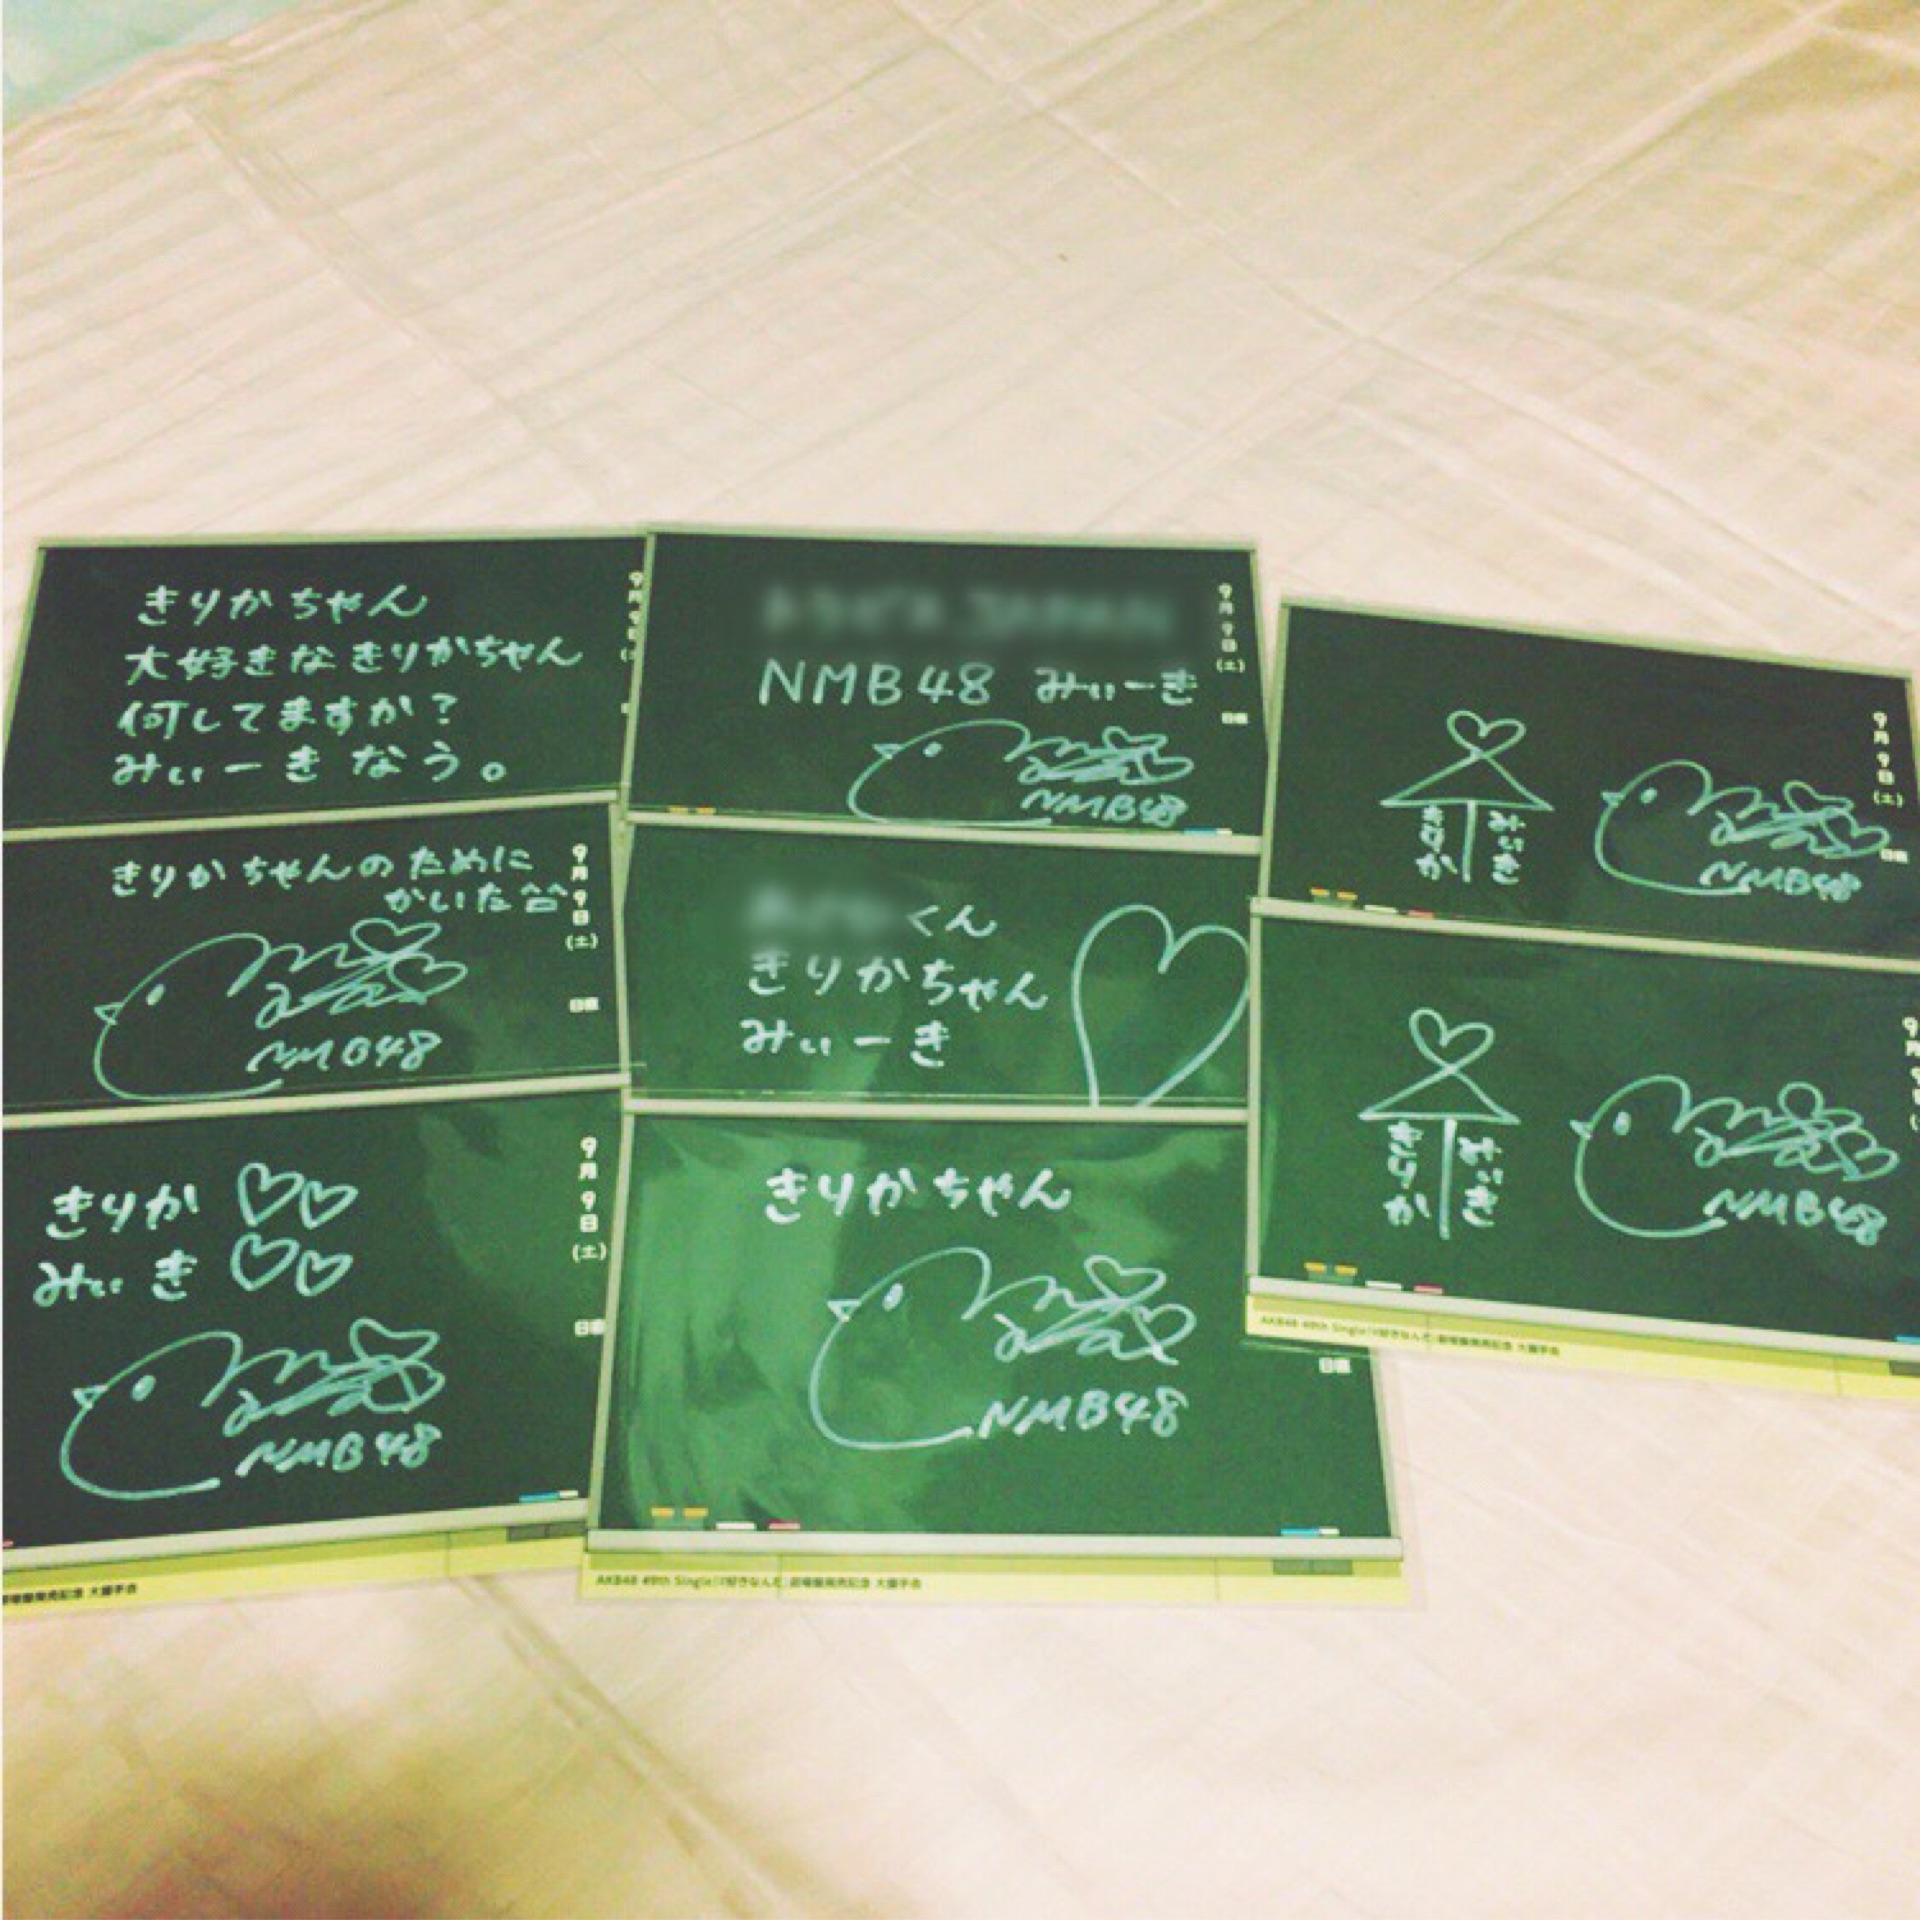 きりかちゃん
大好きなきりかちゃん
何してますか?
みぃーきなう。
9月9日
NMB48 みぃーき
NMB48
9月9日(土)
日直
きりか
みぃき
NMB48
9月9日(土)
日直
きりかちゃんのために
かいた
NMB48
9月9日(土)
日直
くん
きりかちゃん
みぃーき
きりか
みぃき
NMB48
9月
AKB48 49th Single「#好きなんだ」劇場盤発売記念 大握手会
きりか
みぃき
NMB48
9月9日(土)
日直
劇場盤発売記念 大握手会
きりかちゃん
NMB48
日直
AKB48 49th Single「#好きなんだ」劇場盤発売記念 大握手会